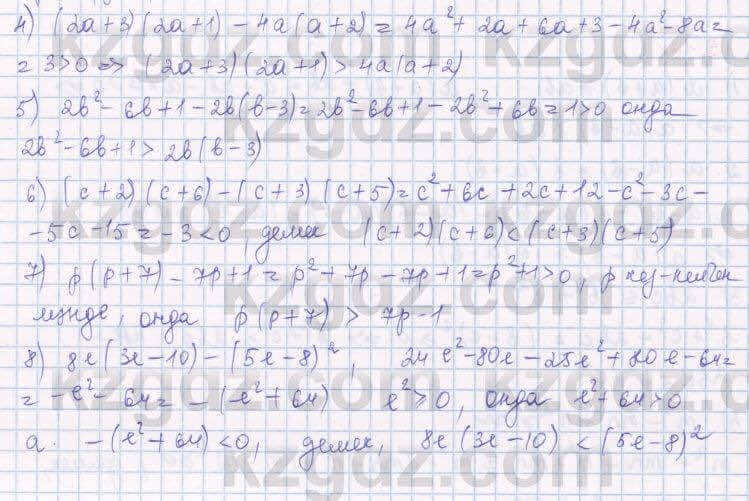 4) (2a+3)(2a+1) - 4a(a+2) = 4a²+2a+6a+3-4a²-8a=
= 3>0 => (2a+3)(2a+1) > 4a(a+2)
5) 2b²-6b+1-2b(b-3)=2b²-6b+1-2b²+6b=1>0 онда
2b²-6b+1 > 2b(b-3)
6) (c+2)(c+6)-(c+3)(c+5)=c²+6c+2c+12-c²-3c-
-5c-15=-3<0, демек (c+2)(c+6)<(c+3)(c+5)
7) p(p+7)-7p+1=p²+7p-7p+1=p²+1>0, p кез-келген
мәнде, онда p(p+7) > 7p-1
8) 8e(3e-10)-(5e-8)², 24e²-80e-25e²+80e-64=
= -e²-64= -(e²+64) e²≥0, онда e²+64>0
а. -(e²+64)<0, демек, 8e(3e-10)<(5e-8)²
kzgdz.com